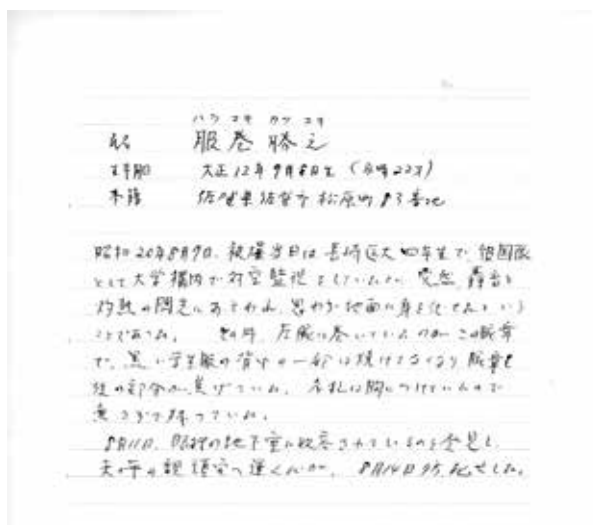 ハラマキ カツユキ
氏名 服巻勝之
生年月日 大正12年9月8日生(当時22才)
本籍 佐賀県佐賀市松原町83番地
昭和20年8月9日、被爆当日は長崎医大四年生で、祖国医
として大学構内で対空監視をしていたが、突然、轟音と
灼熱の閃光におそわれ、思わず地面に身を伏せたという
ことであった。その時、左腕に巻いていたのがこの腕章
で、黒い学生服の背中の一部は焼けてなくなり腕章も
後の部分が焦げていた。名札は胸につけていたので
無きずで残っていた。
8月11日、附設の地下室に収容されているのを発見し、
夫の平の親類宅へ運んだが、8月14日死亡した。